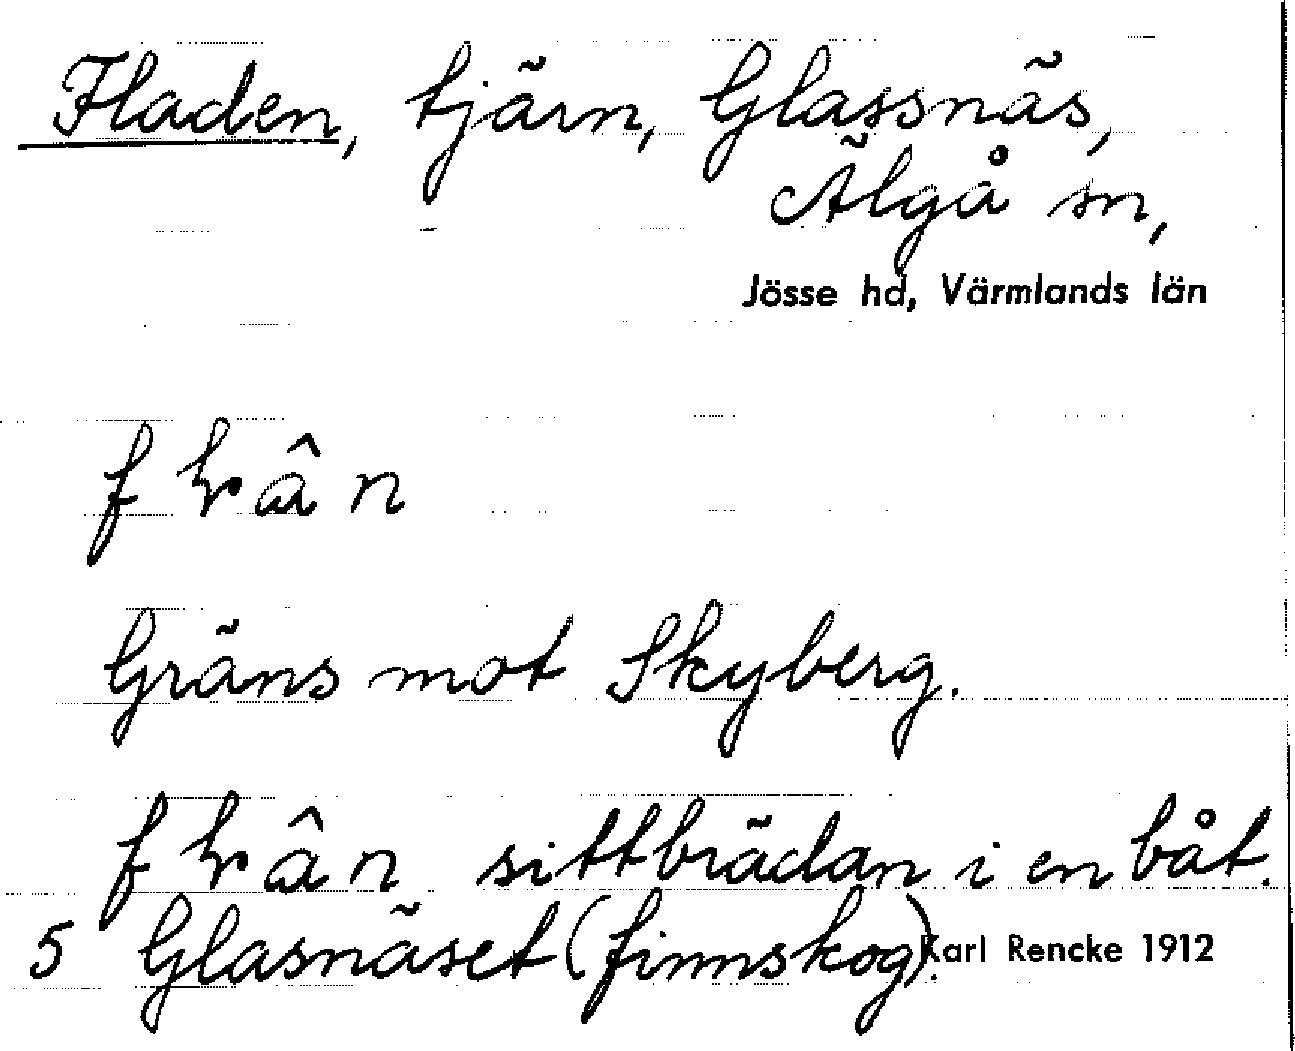 Fladen, tjärn, Glassnäs,
Älgå sn,
Jösse hd, Värmlands län
Gräns mot Skyberg.
sittbrädan i en båt.
5 Glasnäset (finnskog). Karl Rencke 1912